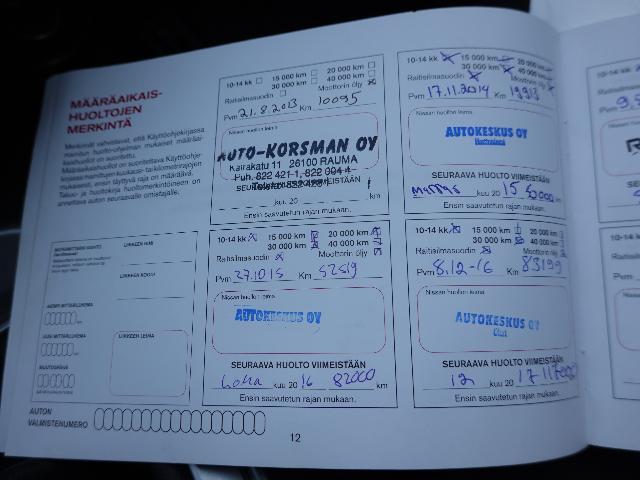 MÄÄRÄAIKAIS-
HUOLTOJEN
MERKINTÄ
Merkinnät vahvistavat, että Käyttöohjekirjassa
mainitun huolto-ohjelman mukaiset määräai-
kaishuollot on suoritettu.
Määräaikaishuollot on suoritettava Käyttöohje-
kirjassa mainittujen kuukausi- tai kilometrirajojen
mukaisesti, ensin täyttyvä raja on määräävä.
Takuu- ja huoltokirja huoltomerkintöineen on
annettava auton seuraavalle omistajalle.
LIIKKEEN NIMI
LIIKKEEN KOODI
LIIKKEEN LEIMA
AUTON
VALMISTENUMERO
10-14 kk 15 000 km 20 000 km
30 000 km 40 000 km
Raitisilmasuodin Moottorin öljy
Pvm 21.8.2013 Km 10095
Nissan huollon leima
AUTO-KORSMAN OY
Kairakatu 11 26100 RAUMA
Puh. 822 421-1, 822 004-4
SEURAAVA HUOLTO VIIMEISTÄÄN
kuu 20 km
Ensin saavutetun rajan mukaan.
10-14 kk 15 000 km 20 000 km
30 000 km 40 000 km
Raitisilmasuodin Moottorin öljy
Pvm 17.11.2014 Km
Nissan huollon leima
AUTOKESKUS OY
SEURAAVA HUOLTO VIIMEISTÄÄN
marras kuu 20 15 50000 km
Ensin saavutetun rajan mukaan.
10-14 kk 15 000 km 20 000 km
30 000 km 40 000 km
Raitisilmasuodin Moottorin öljy
Pvm 27.10.15 Km 52519
Nissan huollon leima
AUTOKESKUS OY
SEURAAVA HUOLTO VIIMEISTÄÄN
Loka kuu 20 16 82000 km
Ensin saavutetun rajan mukaan.
10-14 kk 15 000 km 20 000 km
30 000 km 40 000 km
Raitisilmasuodin Moottorin öljy
Pvm 8.12-16 Km 83199
Nissan huollon leima
AUTOKESKUS OY
SEURAAVA HUOLTO VIIMEISTÄÄN
12 kuu 20 17
Ensin saavutetun rajan mukaan.
12
10-14 kk